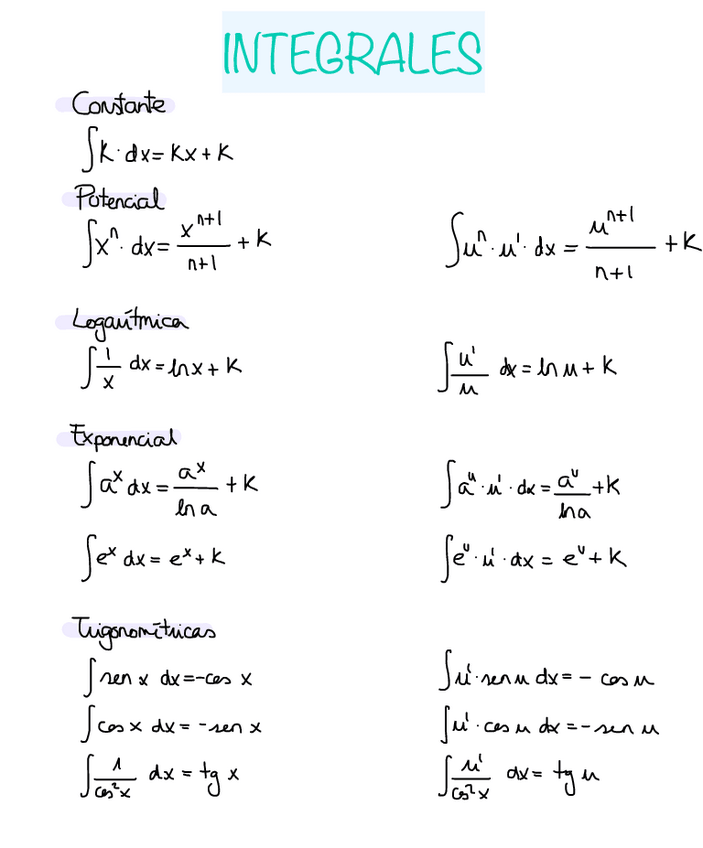 INTEGRALES
Constante
∫k·dx=Kx+K
Potencial
∫xⁿ·dx= x^(n+1)/(n+1) +K    ∫uⁿ·u'·dx = u^(n+1)/(n+1) +K
Logarítmica
∫1/x dx=lnx+K    ∫u'/u dx=ln u+K
Exponencial
∫aˣdx= aˣ/ln a +K    ∫a^u·u'·dx= a^u/lna +K
∫eˣ dx= eˣ+K    ∫e^u·u'·dx = e^u+K
Trigonométricas
∫sen x dx=-cos x    ∫u'·sen u dx= - cos u
∫cos x dx= -sen x    ∫u'·cos u dx=-sen u
∫1/cos²x dx = tg x    ∫u'/cos²x dx= tg u